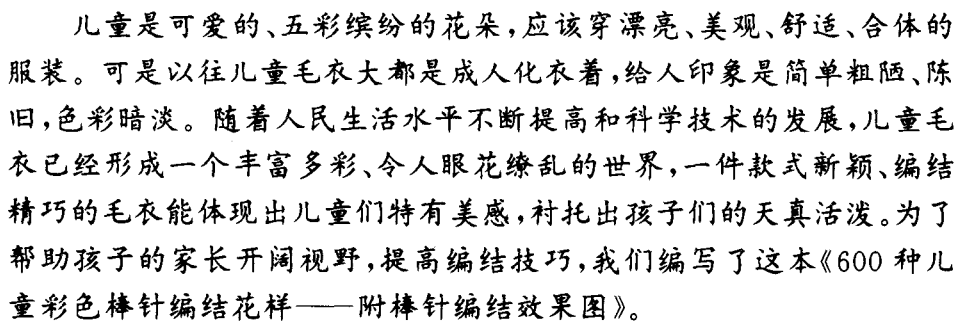 儿童是可爱的、五彩缤纷的花朵,应该穿漂亮、美观、舒适、合体的
服装。可是以往儿童毛衣大都是成人化衣着,给人印象是简单粗陋、陈
旧,色彩暗淡。随着人民生活水平不断提高和科学技术的发展,儿童毛
衣已经形成一个丰富多彩、令人眼花缭乱的世界,一件款式新颖、编结
精巧的毛衣能体现出儿童们特有美感,衬托出孩子们的天真活泼。为了
帮助孩子的家长开阔视野,提高编结技巧,我们编写了这本《600 种儿
童彩色棒针编结花样——附棒针编结效果图》。